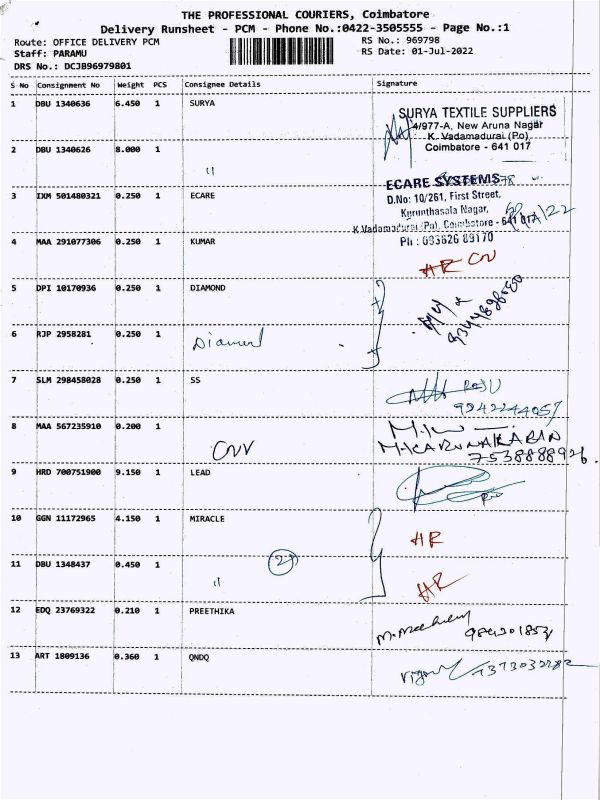 THE PROFESSIONAL COURIERS, Coimbatore
Delivery Runsheet - PCM - Phone No.:0422-3505555 - Page No.:1
Route: OFFICE DELIVERY PCM
Staff: PARAMU
DRS No.: DCJB96979801
RS No.: 969798
RS Date: 01-Jul-2022
S No Consignment No Weight PCS Consignee Details Signature
1 DBU 1340636 6.450 1 SURYA
SURYA TEXTILE SUPPLIERS
4/977-A, New Aruna Nagar
K. Vadamadurai (Po)
Coimbatore - 641 017
2 DBU 1340626 8.000 1 "
3 IXM 501480321 0.250 1 ECARE
ECARE SYSTEMS
D.No: 10/261, First Street,
Kurunthasala Nagar,
K.Vadamadurai (Po), Coimbatore - 641 017
Ph : 093626 89170
4 MAA 291077306 0.250 1 KUMAR
HR CN
5 DPI 10170936 0.250 1 DIAMOND
6 RJP 2958281 0.250 1 Diamond
7 SLM 298458028 0.250 1 SS
RAJU
9942244057
8 MAA 567235910 0.200 1
M.KARUNAKARAN
7538888926.
9 HRD 700751900 9.150 1 LEAD
10 GGN 11172965 4.150 1 MIRACLE
HR
11 DBU 1348437 0.450 1 " 2
HR
12 EDQ 23769322 0.210 1 PREETHIKA
13 ART 1809136 0.360 1 QNDQ
7373032282